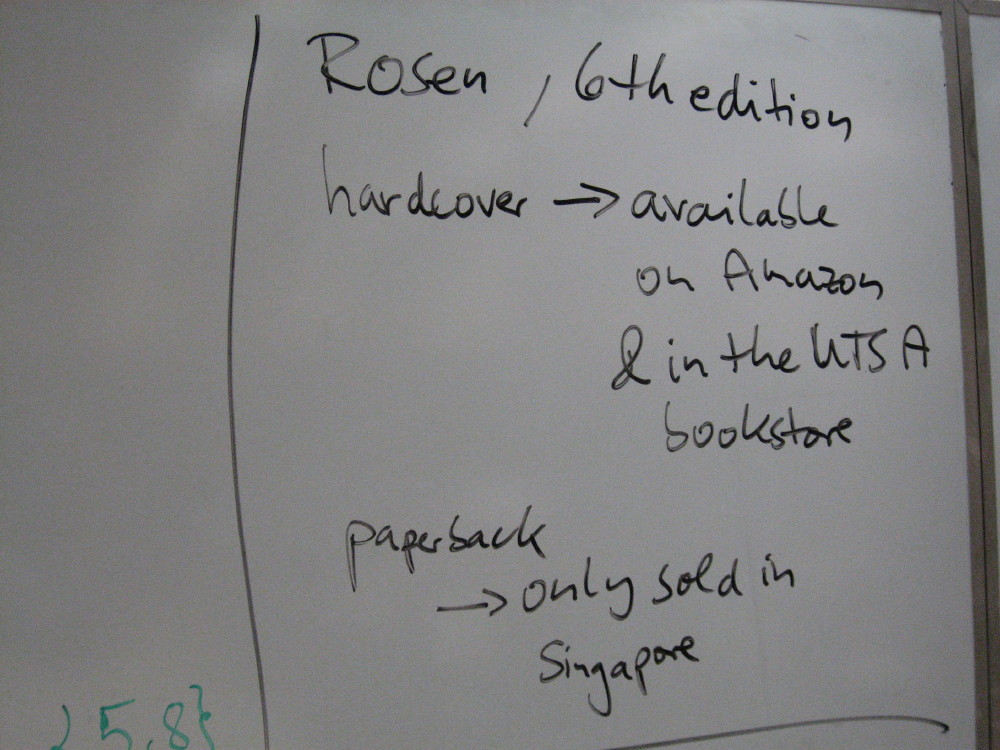 Rosen, 6th edition
hardcover → available
on Amazon
& in the UTSA
bookstore
paperback
→ only sold in
Singapore
5,8}